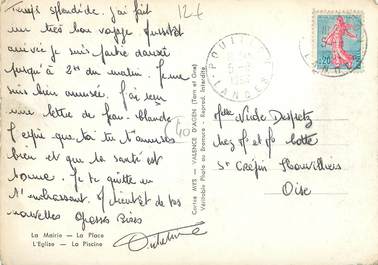 Temps splendide. J'ai fait
un très bon voyage aussitôt
arrivée je suis partie danser
jusqu'à 2H du matin. Je me
suis bien amusée. J'ai reçu
une lettre de Jean-Claude
J'espère que toi tu t'amuses
bien et que ta santé est
bonne. Je te quitte en
t'embrassant. A bientôt de tes
nouvelles Grosses Bises
La Mairie — La Place
L'Eglise — La Piscine
12 F
40
Cartes MYS — VALENCE-D'AGEN (Tarn et Gne)
Véritable Photo au Bromure - Reprod. Interdite
POUILLON
LANDES
0,20
Melle Nicole
chez Mr et Mme
St Crépin Ibouvillers
Oise